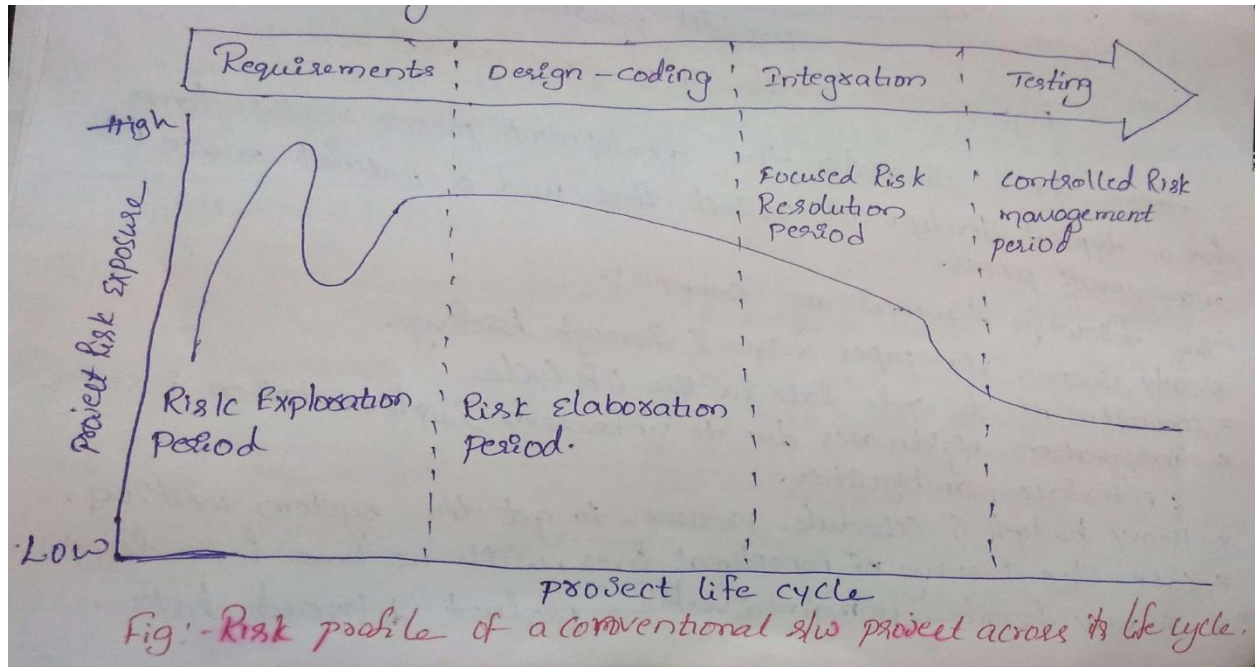 Requirements
Design-coding
Integration
Testing
High
Project Risk Exposure
Focused Risk
Resolution
Period
controlled Risk
management
period
Risk Exploration
Period
Risk Elaboration
Period.
Low
project life cycle
Fig:- Risk profile of a conventional s/w project across its life cycle.